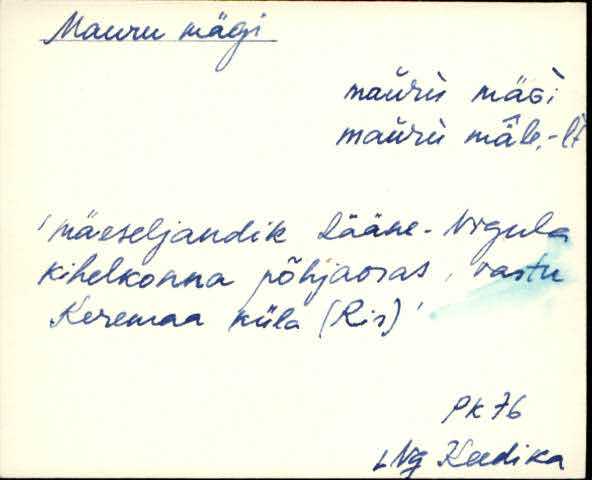 Mauru mägi
maùrù mäGi
maùrù mâle, -lt
'mäeseljandik Lääne-Nigula
kihelkonna põhjaosas, vastu
Keremaa küla (Ris)'
PK 76
LNg Keedika